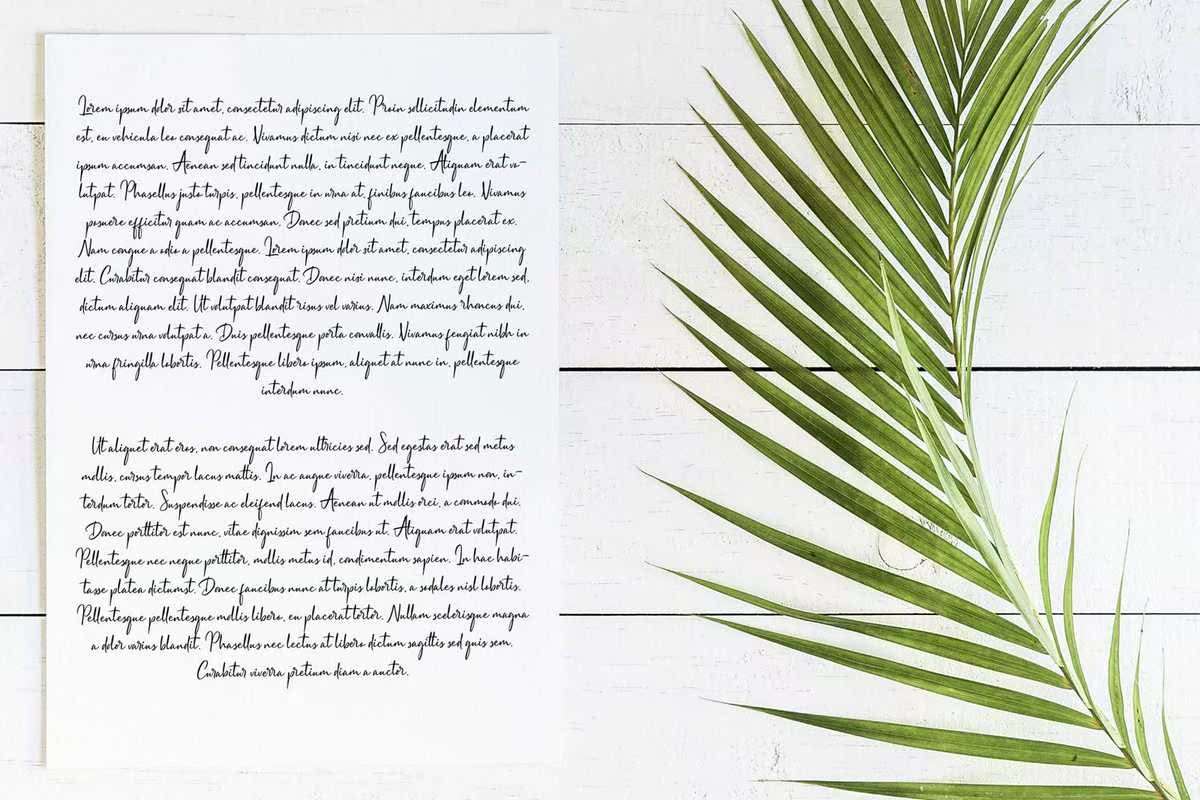 Lorem ipsum dolor sit amet, consectetur adipiscing elit. Proin sollicitudin elementum
est, eu vehicula leo consequat ac. Vivamus dictum nisi nec ex pellentesque, a placerat
ipsum accumsan. Aenean sed tincidunt nulla, in tincidunt neque. Aliquam erat vo-
lutpat. Phasellus justo turpis, pellentesque in urna at, finibus faucibus leo. Vivamus
posuere efficitur quam ac accumsan. Donec sed pretium dui, tempus placerat ex.
Nam congue a odio a pellentesque. Lorem ipsum dolor sit amet, consectetur adipiscing
elit. Curabitur consequat blandit consequat. Donec nisi nunc, interdum eget lorem sed,
dictum aliquam elit. Ut volutpat blandit risus vel varius. Nam maximus rhoncus dui,
nec cursus urna volutpat a. Duis pellentesque porta convallis. Vivamus feugiat nibh in
urna fringilla lobortis. Pellentesque libero ipsum, aliquet at nunc in, pellentesque
interdum nunc.
Ut aliquet erat eros, non consequat lorem ultricies sed. Sed egestas erat sed metus
mollis, cursus tempor lacus mattis. In ac augue viverra, pellentesque ipsum non, in-
terdum tortor. Suspendisse ac eleifend lacus. Aenean ut mollis orci, a commodo dui.
Donec porttitor est nunc, vitae dignissim sem faucibus ut. Aliquam erat volutpat.
Pellentesque nec neque porttitor, mollis metus id, condimentum sapien. In hac habi-
tasse platea dictumst. Donec faucibus nunc at turpis lobortis, a sodales nisl lobortis.
Pellentesque pellentesque mollis libero, eu placerat tortor. Nullam scelerisque magna
a dolor varius blandit. Phasellus nec lectus at libero dictum sagittis sed quis sem.
Curabitur viverra pretium diam a auctor.